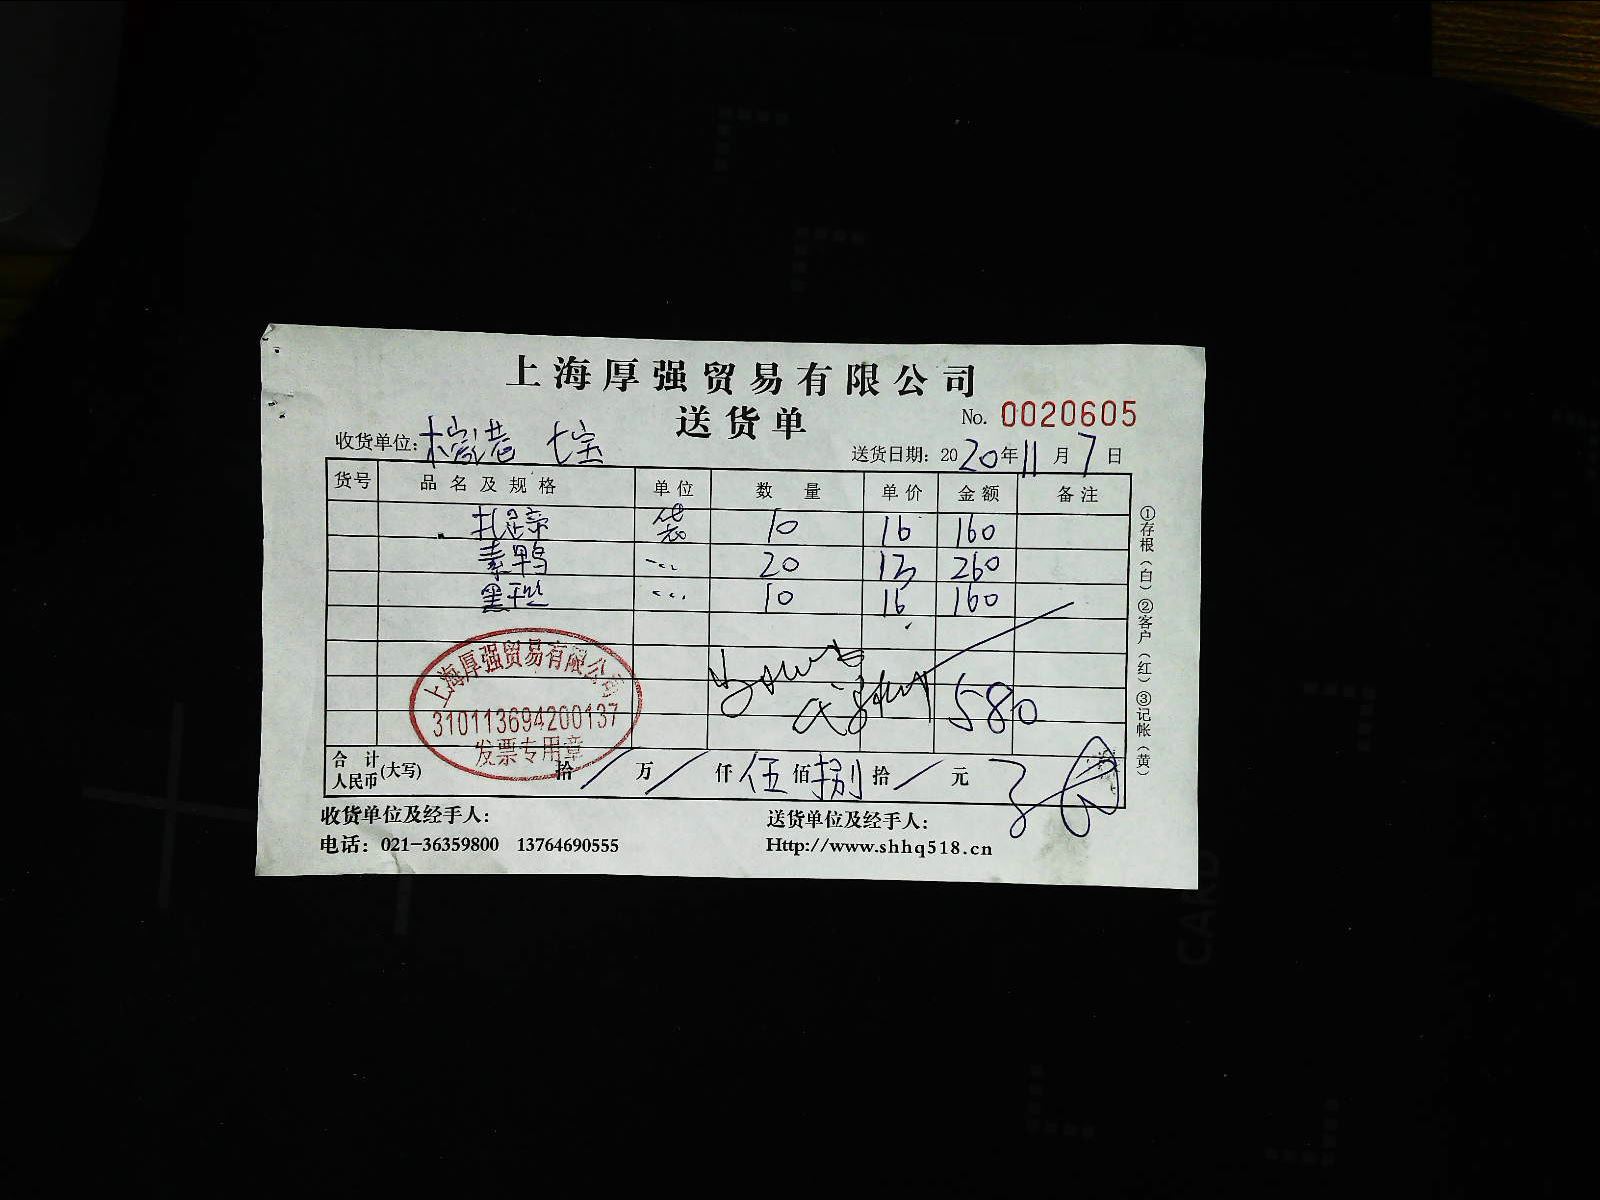 上海厚强贸易有限公司
送货单 No. 0020605
收货单位: 七宝 送货日期: 2020年11月7日
货号 品名及规格 单位 数量 单价 金额 备注
袋 10 16 160
素鸭 20 13 260
黑 10 16 160
580
上海厚强贸易有限公司
310113694200137
发票专用章
合计人民币(大写) 拾 / 万 / 仟 伍 佰 捌 拾 / 元
收货单位及经手人: 送货单位及经手人:
电话: 021-36359800 13764690555 Http://www.shhq518.cn
①存根(白)②客户(红)③记帐(黄)